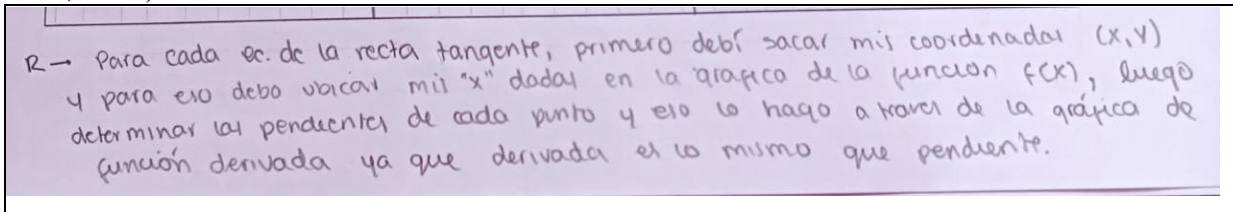 R→ Para cada ec. de la recta tangente, primero debí sacar mis coordenadas (x,y)
y para eso debo ubicar mis "x" dadas en la grafica de la función f(x), luego
determinar las pendientes de cada punto y eso lo hago a traves de la gráfica de
función derivada ya que derivada es lo mismo que pendiente.